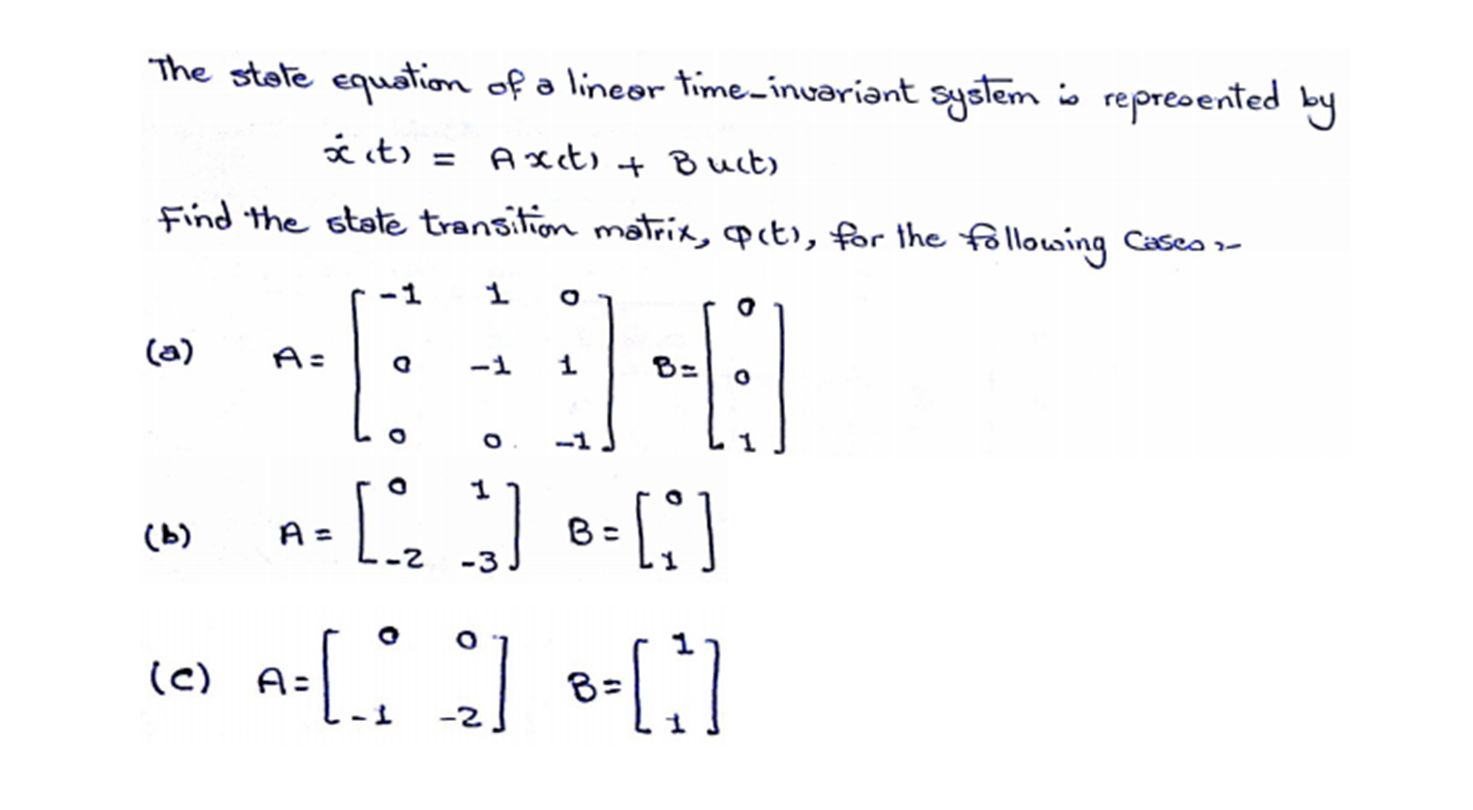 The state equation of a linear time-invariant system is represented by
ẋ(t) = A x(t) + B u(t)
Find the state transition matrix, φ(t), for the following Cases :-
(a) A = [ -1 1 0 ; 0 -1 1 ; 0 0 -1 ] B = [ 0 ; 0 ; 1 ]
(b) A = [ 0 1 ; -2 -3 ] B = [ 0 ; 1 ]
(c) A = [ 0 0 ; -1 -2 ] B = [ 1 ; 1 ]